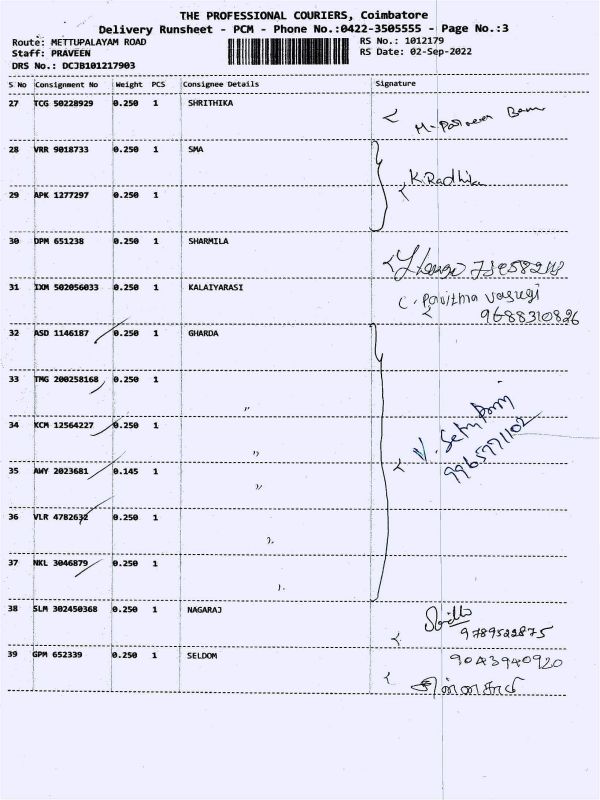 THE PROFESSIONAL COURIERS, Coimbatore
Delivery Runsheet - PCM - Phone No.:0422-3505555 - Page No.:3
Route: METTUPALAYAM ROAD RS No.: 1012179
Staff: PRAVEEN RS Date: 02-Sep-2022
DRS No.: DCJB101217903
S No Consignment No Weight PCS Consignee Details Signature
27 TCG 50228929 0.250 1 SHRITHIKA
28 VRR 9018733 0.250 1 SMA
K.Radhika
29 APK 1277297 0.250 1
30 DPM 651238 0.250 1 SHARMILA
31 IXM 502056033 0.250 1 KALAIYARASI C. Pavithra
9688310826
32 ASD 1146187 0.250 1 GHARDA
33 TMG 200258168 0.250 1 "
34 KCM 12564227 0.250 1 "
V.
9965771102
35 AWY 2023681 0.145 1 "
36 VLR 4782632 0.250 1 "
37 NKL 3046879 0.250 1 "
38 SLM 302450368 0.250 1 NAGARAJ
9789522875
39 GPM 652339 0.250 1 SELDOM 9043940920